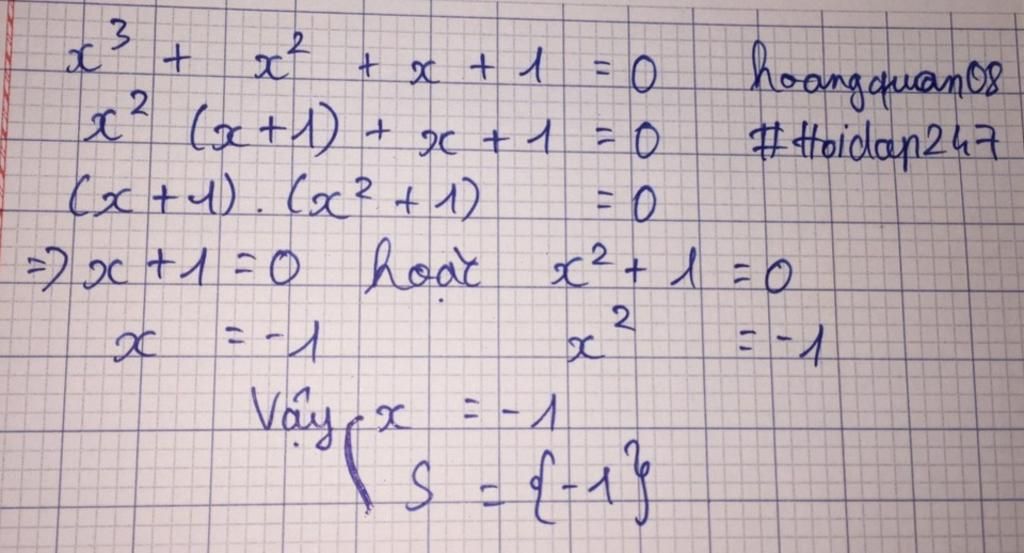 x³ + x² + x + 1 = 0 hoangquan08
x² (x+1) + x + 1 = 0 #Hoidap247
(x+1).(x²+1) = 0
=> x+1=0 hoặc x²+1=0
x = -1 x² = -1
Vậy x = -1
S = {-1}